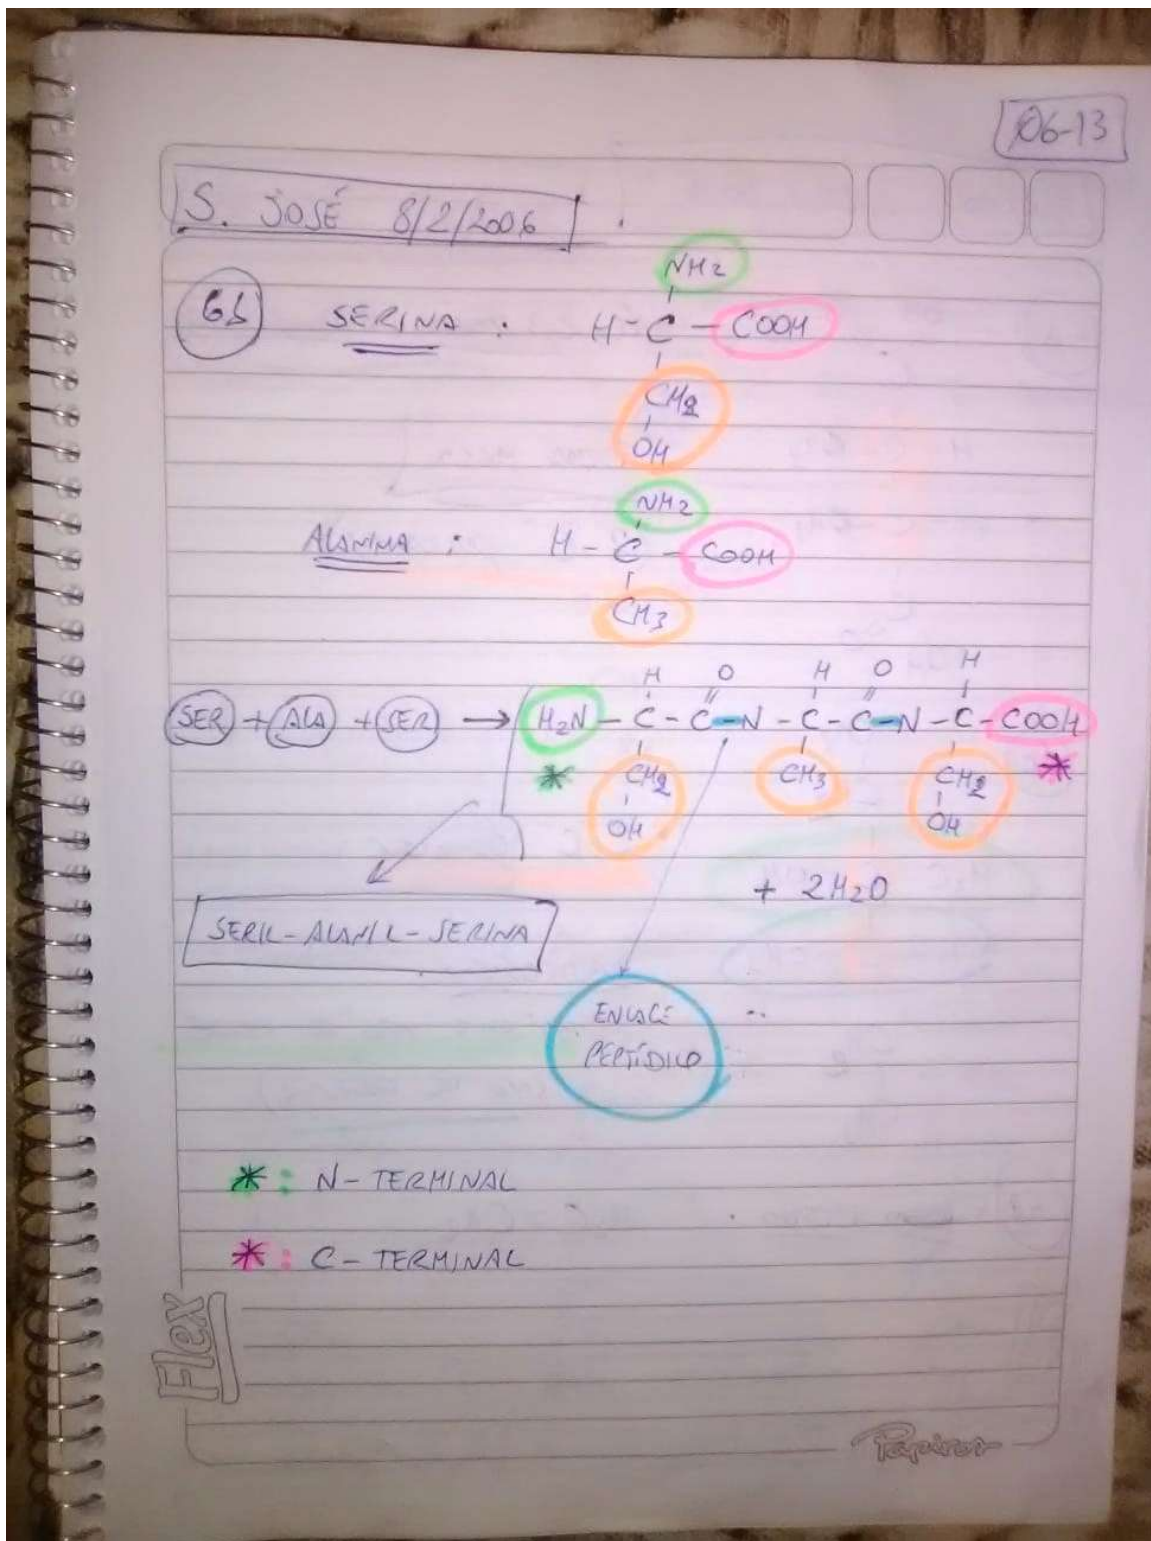 06-13
S. JOSÉ 8/2/2006
NH2
SERINA : H - C - COOH
CH2
OH
NH2
ALANINA : H - C - COOH
CH3
H O H O H
SER + ALA + SER → H2N - C - C - N - C - C - N - C - COOH
* CH2 CH3 CH2 *
OH OH
+ 2H2O
SERIL - ALANIL - SERINA
ENLACE
PEPTÍDICO
* : N - TERMINAL
* : C - TERMINAL
Flex
Papiros